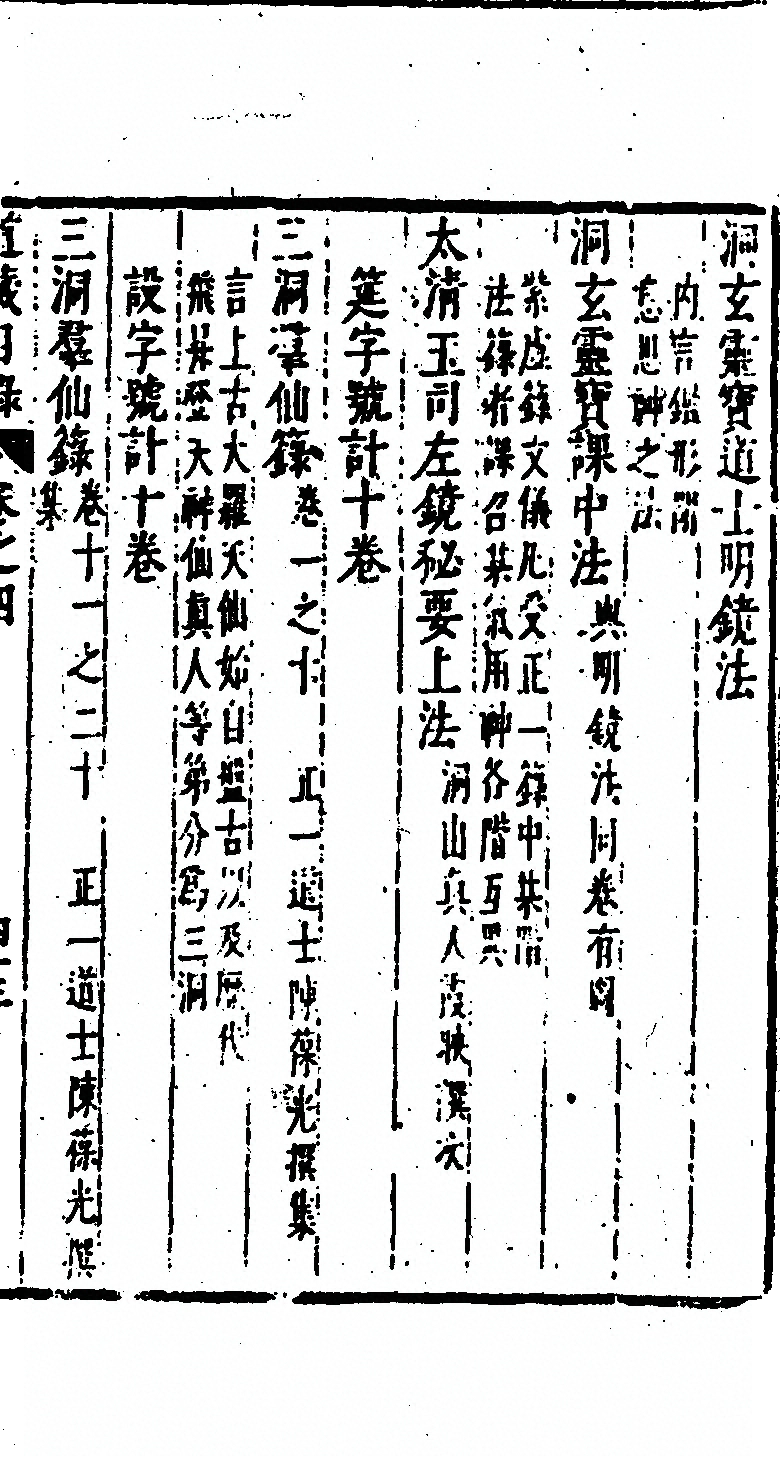 洞玄靈寶道士明鏡法
內言鑑形閉
怎思神之法
洞玄靈寶課中法與明鏡法同卷有圖
紫虛籙文儀凡受正一籙中某階
法籙者課召某籙用神各階互異
太清玉司左鏡秘要上法洞山真人霞映撰文
筵字號計十卷
三洞羣仙籙卷一之十 正一道士陳葆光撰集
言上古大羅天仙始自盤古以及歷代
飛昇登天神仙真人等第分為三洞
設字號計十卷
三洞羣仙籙卷十一之二十 正一道士陳葆光撰
集
道藏目錄 卷之四 四十三